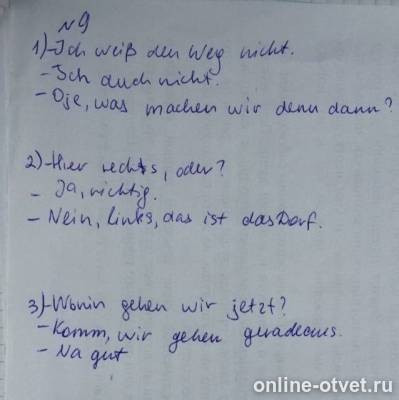 N9
1) - Ich weiß den Weg nicht.
- Ich auch nicht.
- Oje, was machen wir denn dann?
2) - Hier rechts, oder?
- Ja, richtig.
- Nein, links, das ist das Dorf.
3) - Wohin gehen wir jetzt?
- Komm, wir gehen geradeaus.
- Na gut
online-otvet.ru